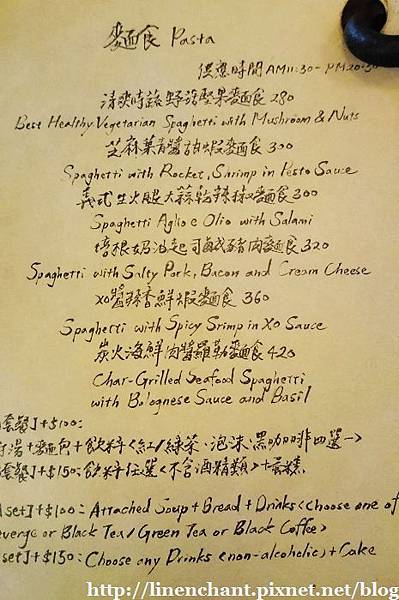 麵食 Pasta
供應時間AM11:30-PM20:30
清爽時蔬野菇堅果麵食 280
Best Healthy Vegetarian Spaghetti with Mushroom & Nuts
芝麻葉青醬甜蝦麵食 300
Spaghetti with Rocket, Shrimp in Pesto Sauce
義式生火腿大蒜乾辣椒麵食 300
Spaghetti Aglio e Olio with Salami
培根奶油起司鹹豬肉麵食 320
Spaghetti with Salty Pork, Bacon and Cream Cheese
XO醬辣香鮮蝦麵食 360
Spaghetti with Spicy Srimp in Xo Sauce
炭火海鮮肉醬羅勒麵食 420
Char-Grilled Seafood Spaghetti
with Bolognese Sauce and Basil
套餐]+$100:
湯+麵包+飲料<紅/綠茶、泡沫、黑咖啡四選一>
套餐]+$150:飲料任選<不含酒精類>+蛋糕
set]+$100: Attached Soup + Bread + Drinks<choose one of
everge or Black Tea/Green Tea or Black Coffee>
set]+$150: Choose any Drinks <non-alcoholic> + Cake
http://linenchant.pixnet.net/blog